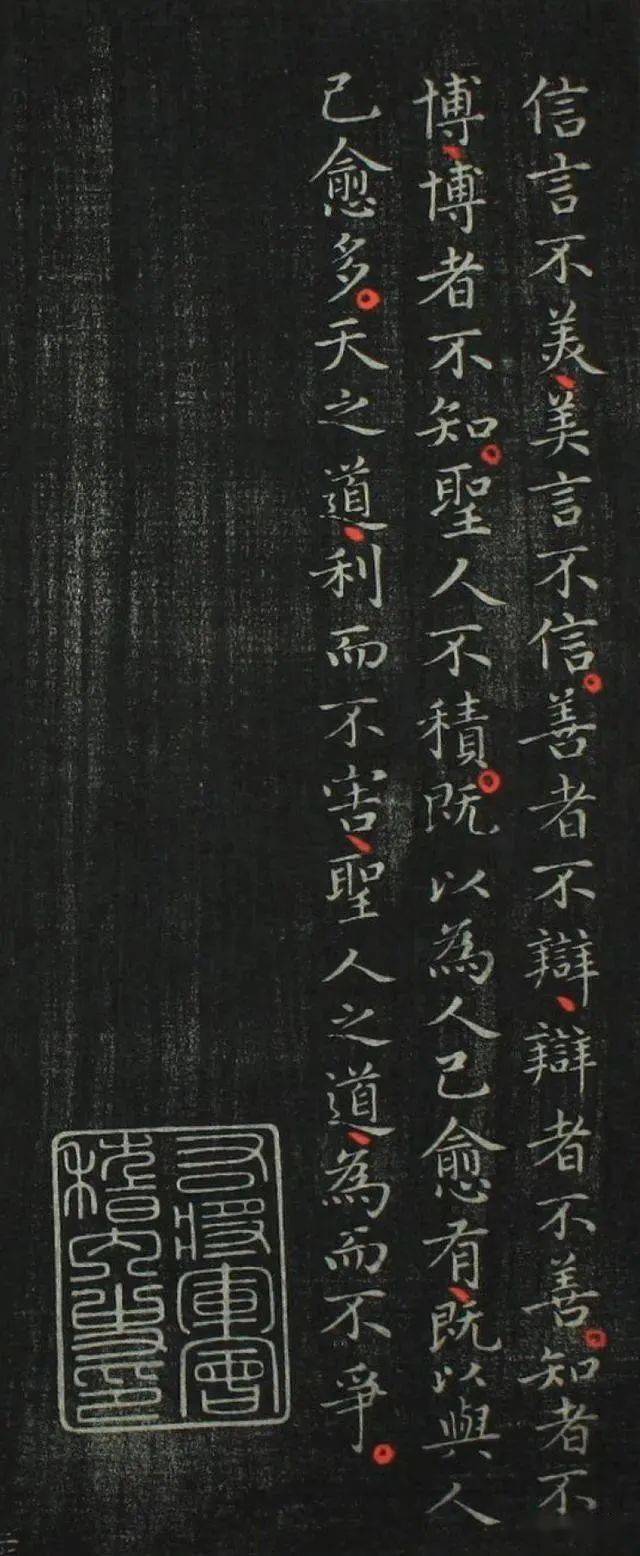 信言不美、美言不信。善者不辯、辯者不善。知者不
博、博者不知。聖人不積。既以為人己愈有、既以與人
己愈多。天之道、利而不害、聖人之道、為而不爭。
右將軍會
稽內史印